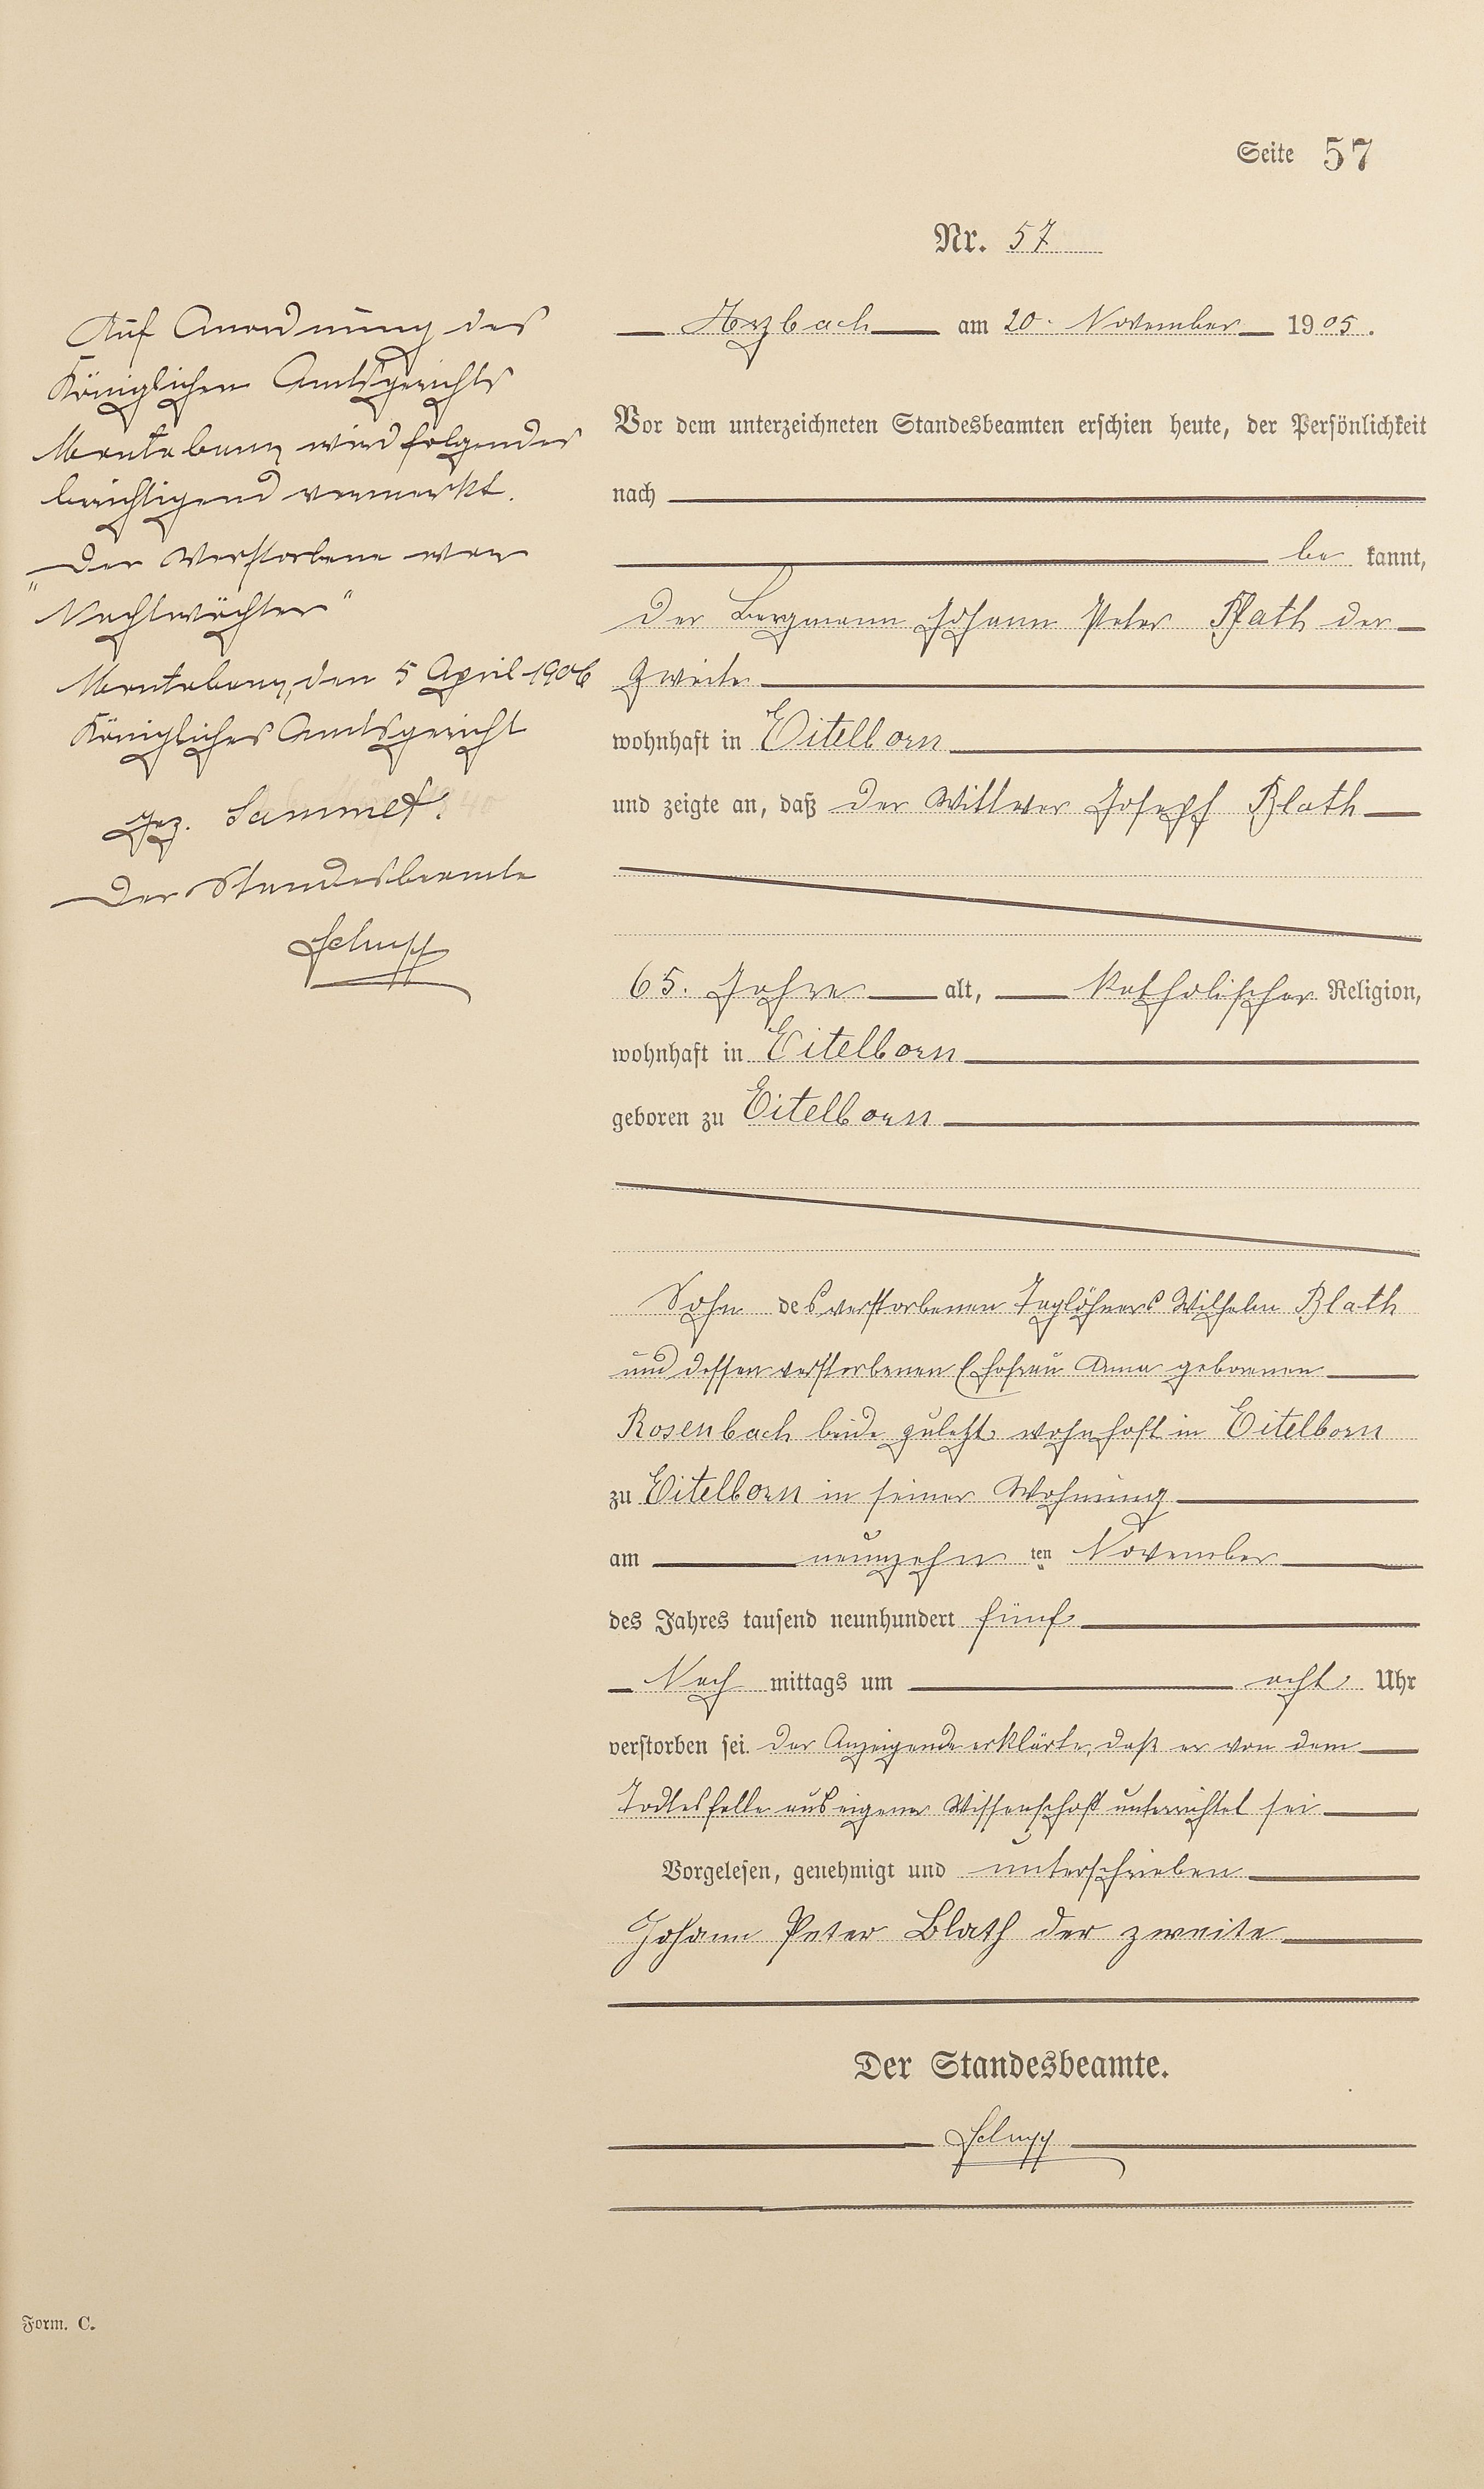 Seite 57
Nr. 57
Arzbach am 20. November 1905.
Vor dem unterzeichneten Standesbeamten erschien heute, der Persönlichkeit
nach
be kannt,
der Bergmann Johann Peter Blath der
Zweite
wohnhaft in Eitelborn
und zeigte an, daß der Wittwer Joseph Blath
65. Jahre alt, katholischer Religion,
wohnhaft in Eitelborn
geboren zu Eitelborn
Sohn des verstorbenen Taglöhners Wilhelm Blath
und dessen verstorbenen Ehefrau Anna geborenen
Rosenbach beide zuletzt wohnhaft in Eitelborn
zu Eitelborn in seiner Wohnung
am neunzehn ten November
des Jahres tausend neunhundert fünf
Nach mittags um acht Uhr
verstorben sei. Der Anzeigende erklärte, daß er von dem
Todtesfalle aus eigener Wissenschaft unterrichtet sei
Vorgelesen, genehmigt und unterschrieben
Johann Peter Blath der zweite
Der Standesbeamte.
Auf Anordnung des
Königlichen Amtsgerichts
Montabaur wird folgendes
berichtigend vermerkt.
"Der Verstorbene war
Nachtwächter"
Montabaur, den 5 April 1906
Königliches Amtsgericht
gez. Sammet.
Der Standesbeamte
Form. C.